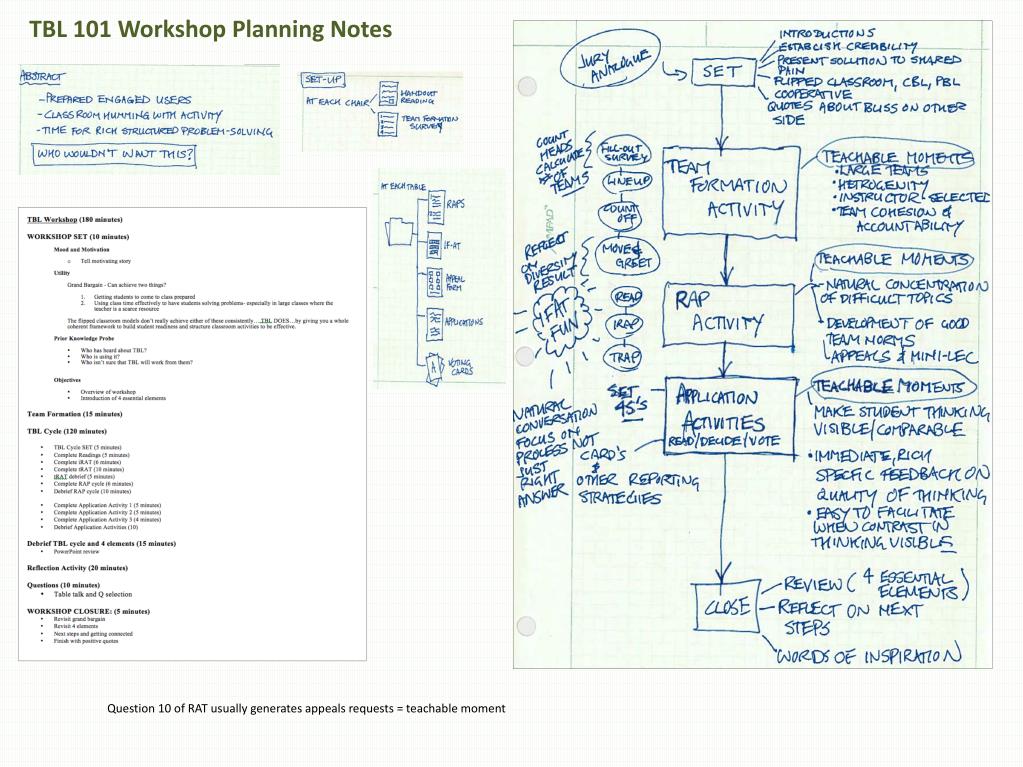 TBL 101 Workshop Planning Notes
ABSTRACT
-PREPARED ENGAGED USERS
-CLASSROOM HUMMING WITH ACTIVITY
-TIME FOR RICH STRUCTURED PROBLEM-SOLVING
WHO WOULDN'T WANT THIS?
SET-UP
AT EACH CHAIR
HANDOUT
READING
TEAM FORMATION
SURVEY
AT EACH TABLE
RAPS
IF-AT
APPEAL
FORM
APPLICATIONS
A
VOTING
CARDS
TBL Workshop (180 minutes)
WORKSHOP SET (10 minutes)
Mood and Motivation
o Tell motivating story
Utility
Grand Bargain - Can achieve two things?
1. Getting students to come to class prepared
2. Using class time effectively to have students solving problems- especially in large classes where the
teacher is a scarce resource
The flipped classroom models don't really achieve either of these consistently....TBL DOES...by giving you a whole
coherent framework to build student readiness and structure classroom activities to be effective.
Prior Knowledge Probe
• Who has heard about TBL?
• Who is using it?
• Who isn't sure that TBL will work from them?
Objectives
• Overview of workshop
• Introduction of 4 essential elements
Team Formation (15 minutes)
TBL Cycle (120 minutes)
• TBL Cycle SET (5 minutes)
• Complete Readings (5 minutes)
• Complete iRAT (6 minutes)
• Complete tRAT (10 minutes)
• tRAT debrief (5 minutes)
• Complete RAP cycle (6 minutes)
• Debrief RAP cycle (10 minutes)
• Complete Application Activity 1 (5 minutes)
• Complete Application Activity 2 (5 minutes)
• Complete Application Activity 3 (4 minutes)
• Debrief Application Activities (10)
Debrief TBL cycle and 4 elements (15 minutes)
• PowerPoint review
Reflection Activity (20 minutes)
Questions (10 minutes)
• Table talk and Q selection
WORKSHOP CLOSURE: (5 minutes)
• Revisit grand bargain
• Revisit 4 elements
• Next steps and getting connected
• Finish with positive quotes
JURY
ANALOGUE
SET
INTRODUCTIONS
ESTABLISH CREDIBILITY
PRESENT SOLUTION TO SHARED
PAIN
FLIPPED CLASSROOM, CBL, PBL
COOPERATIVE
QUOTES ABOUT BLISS ON OTHER
SIDE
COUNT
HEADS
CALCULATE
# OF
TEAMS
FILL-OUT
SURVEY
LINEUP
COUNT
OFF
MOVE &
GREET
REFLECT
ON
DIVERSITY
RESULT
TEAM
FORMATION
ACTIVITY
TEACHABLE MOMENTS
• LARGE TEAMS
• HETROGENITY
• INSTRUCTOR-SELECTED
• TEAM COHESION &
ACCOUNTABILITY
IFAT
FUN
READ
IRAP
TRAP
RAP
ACTIVITY
TEACHABLE MOMENTS
- NATURAL CONCENTRATION
OF DIFFICULT TOPICS
• DEVELOPMENT OF GOOD
TEAM NORMS
APPEALS & MINI-LEC
SET
4S'S
NATURAL
CONVERSATION
FOCUS ON
PROCESS NOT
JUST
RIGHT
ANSWER
CARD'S
&
OTHER REPORTING
STRATEGIES
APPLICATION
ACTIVITIES
READ/DECIDE/VOTE
TEACHABLE MOMENTS
MAKE STUDENT THINKING
VISIBLE/COMPARABLE
• IMMEDIATE, RICH
SPECIFIC FEEDBACK ON
QUALITY OF THINKING
• EASY TO FACILITATE
WHEN CONTRAST IN
THINKING VISIBLE
CLOSE
REVIEW (4 ESSENTIAL
ELEMENTS)
REFLECT ON NEXT
STEPS
WORDS OF INSPIRATION
Question 10 of RAT usually generates appeals requests = teachable moment